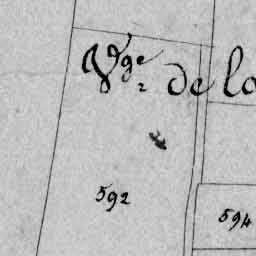 Vge de la
592
594